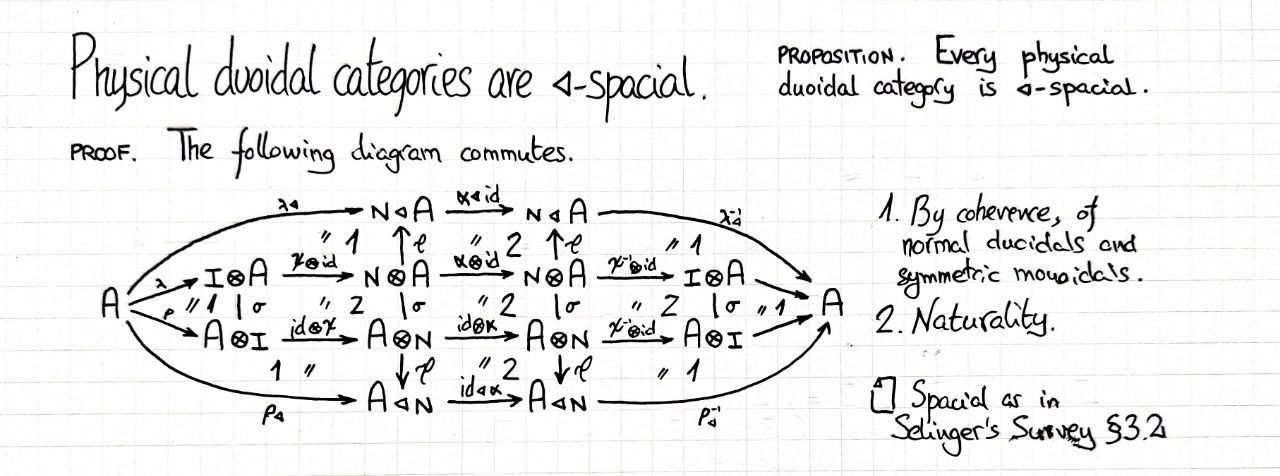 Physical duoidal categories are ◁-spacial.
PROPOSITION. Every physical
duoidal category is ◁-spacial.
PROOF. The following diagram commutes.
λ◁ N◁A α◁id N◁A λ◁⁻¹
〃 1 ↑ℓ 〃 2 ↑ℓ 〃 1
λ I⊗A φ⊗id N⊗A α⊗id N⊗A φ⁻¹⊗id I⊗A
A ρ 〃 1 σ 〃 2 σ 〃 2 σ 〃 2 σ 〃 1 A
A⊗I id⊗φ A⊗N id⊗α A⊗N φ⁻¹⊗id A⊗I
1 〃 ↓ℓ 〃 2 ↓ℓ 〃 1
ρ◁ A◁N id◁α A◁N ρ◁⁻¹
1. By coherence, of
normal duoidals and
symmetric monoidals.
2. Naturality.
Spacial as in
Selinger's Survey §3.2